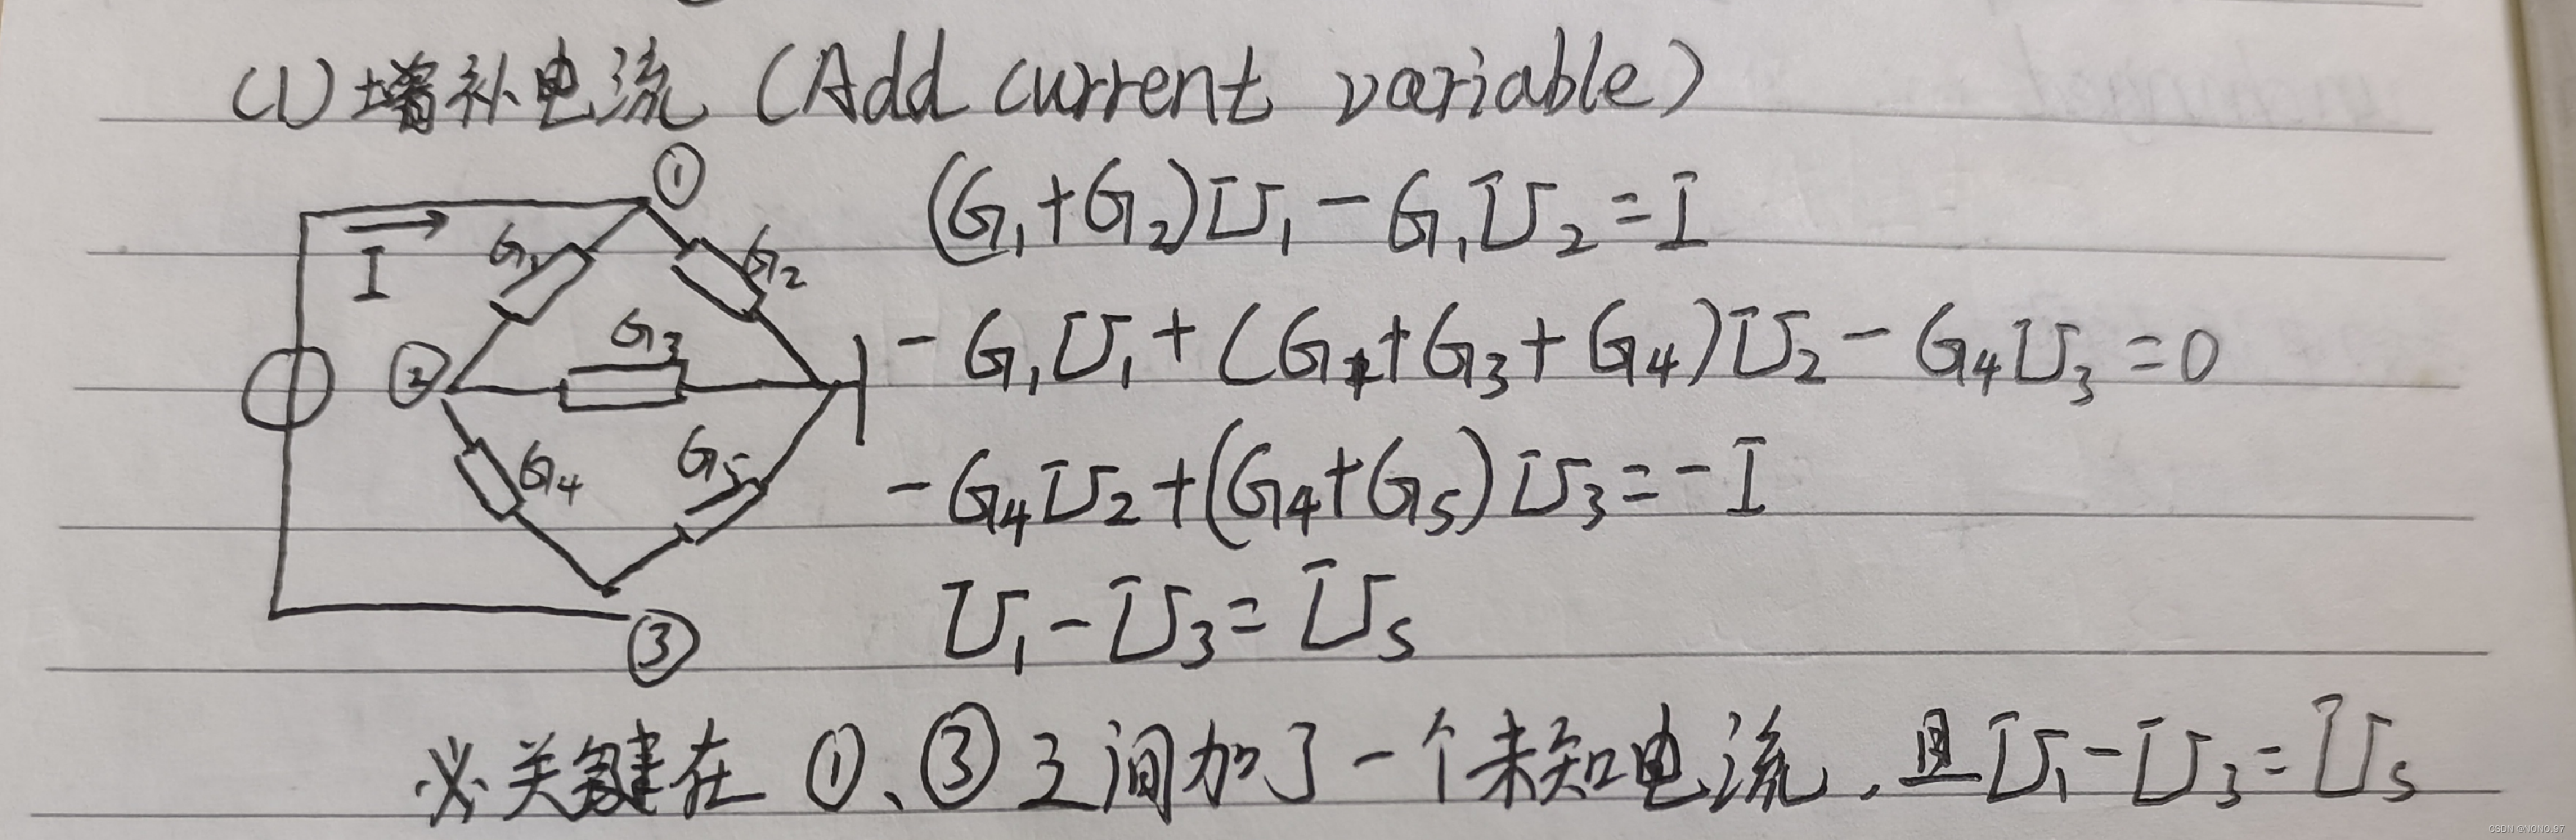 (1)增补电流 (Add current variable)
①
(G₁+G₂)U₁-G₁U₂=I
I
G₁
G₂
G₃
②
-G₁U₁+(G₁+G₃+G₄)U₂-G₄U₃=0
G₄
G₅
-G₄U₂+(G₄+G₅)U₃=-I
U₁-U₃=Us
③
※关键在①、③之间加了一个未知电流.且U₁-U₃=Us
CSDN @NONO.97